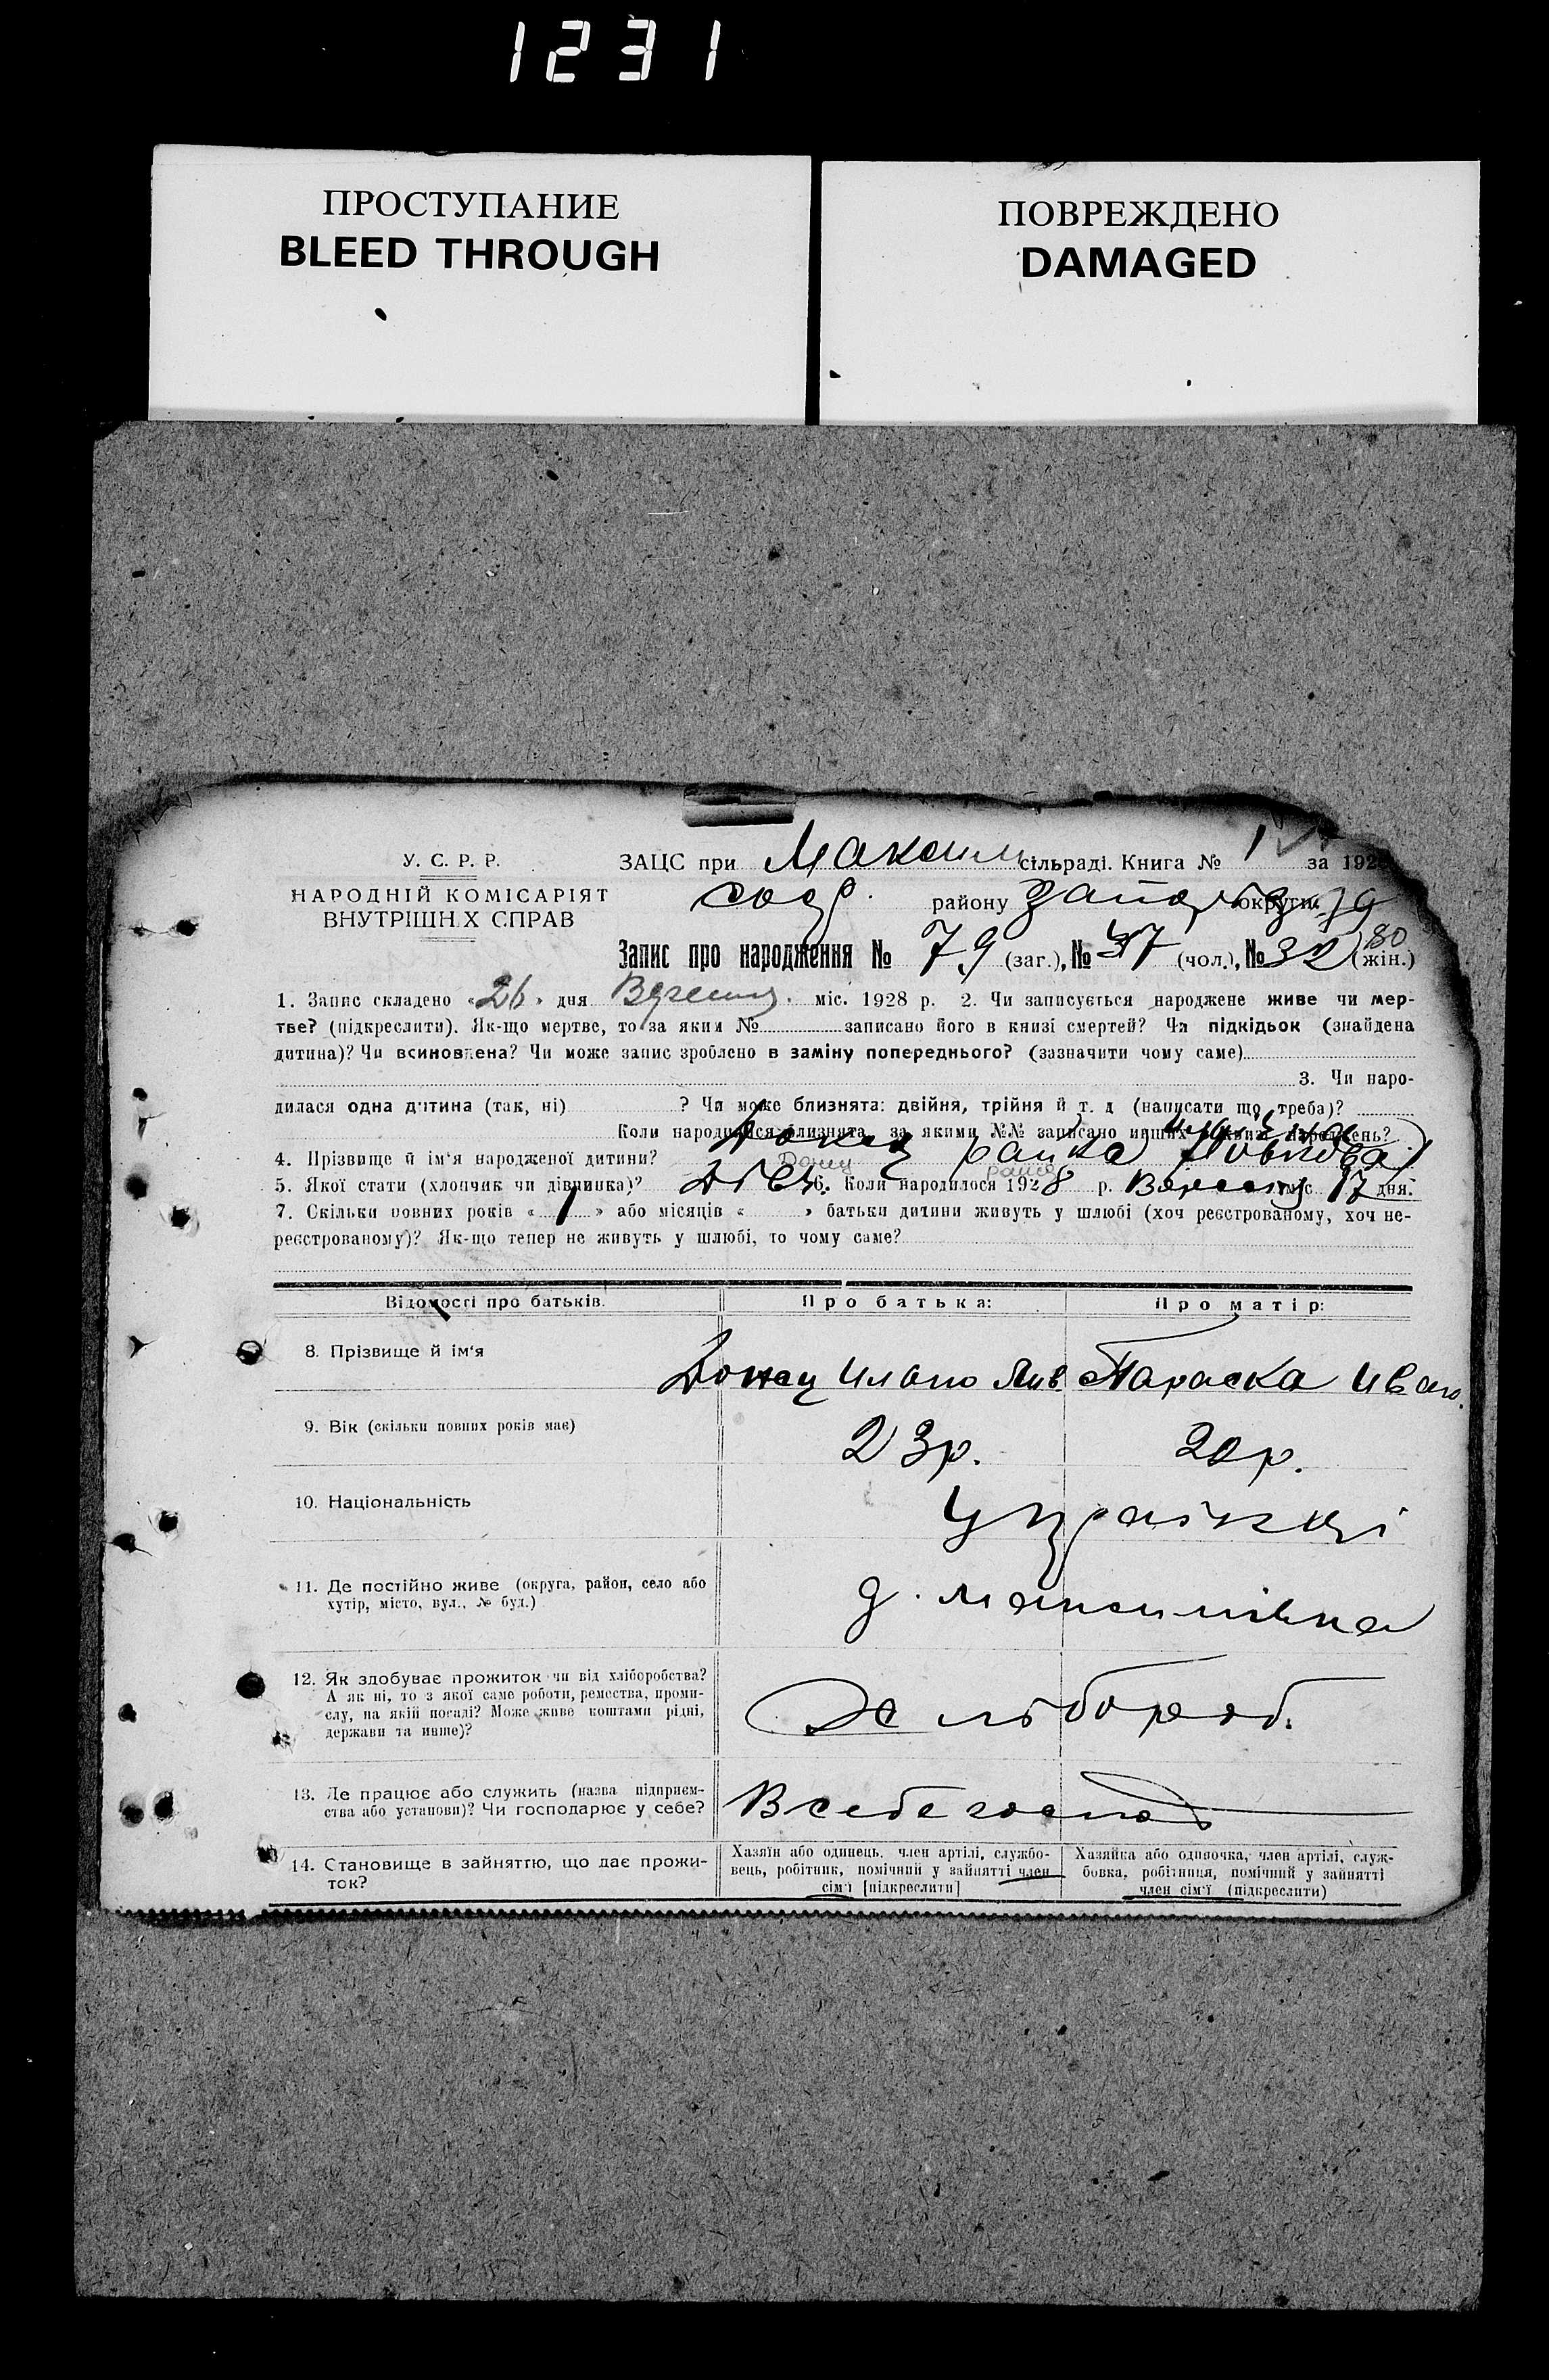 1231
ПРОСТУПАНИЕ
BLEED THROUGH
ПОВРЕЖДЕНО
DAMAGED
У. С. Р. Р.
НАРОДНІЙ КОМІСАРІЯТ
ВНУТРІШН.Х СПРАВ
ЗАЦС при Максим сільраді. Книга № 1 за 192
района округи
Запис про народження № 79 (заг.), № 37 (чол.), № 32 (жін.) 80
1. Запис складено «26» дня Вересня. міс. 1928 р. 2. Чи записується народжене живе чи мер-
тве? (підкреслити). Як-що мертве, то за яким № записано його в книзі смертей? Чи підкідьок (знайдена
дитина)? Чи всиновлена? Чи може запис зроблено в заміну попереднього? (зазначити чому саме)
3. Чи наро-
дилася одна дитина (так, ні) ? Чи може близнята: двійня, трійня й т. д (написати що треба)?
Коли народилися близнята, за якими №№ записано инших в книзі народжень?
4. Прізвище й ім'я народженої дитини? Донец Раика
5. Якої стати (хлопчик чи дівчинка)? Дівч. 6. Коли народилося 1928 р. Вересня міс. 17 дня.
7. Скільки повних років «1» або місяців « » батьки дитини живуть у шлюбі (хоч реєстрованому, хоч не-
реєстрованому)? Як-що тепер не живуть у шлюбі, то чому саме?
Відомості про батьків. Про батька: Про матір:
8. Прізвище й ім'я Донец Параска Иван.
9. Вік (скільки повних років має) 23р. 20р.
10. Національність
11. Де постійно живе (округа, район, село або
хутір, місто, вул., № буд.) д. Максимівка
12. Як здобуває прожиток чи від хліборобства?
А як ні, то з якої саме роботи, ремества, проми-
слу, на якій посаді? Може живе коштами рідні,
держави та инше)? Хлібороб.
13. Де працює або служить (назва підприєм-
ства або установи)? Чи господарює у себе? В себе господ
14. Становище в зайняттю, що дає прожи-
ток?
Хазяїн або одинець, член артілі, службо-
вець, робітник, помічний у зайнятті член
сім'ї [підкреслити]
Хазяйка або одиночка, член артілі, служ-
бовка, робітниця, помічний у зайнятті
член сім'ї (підкреслити)